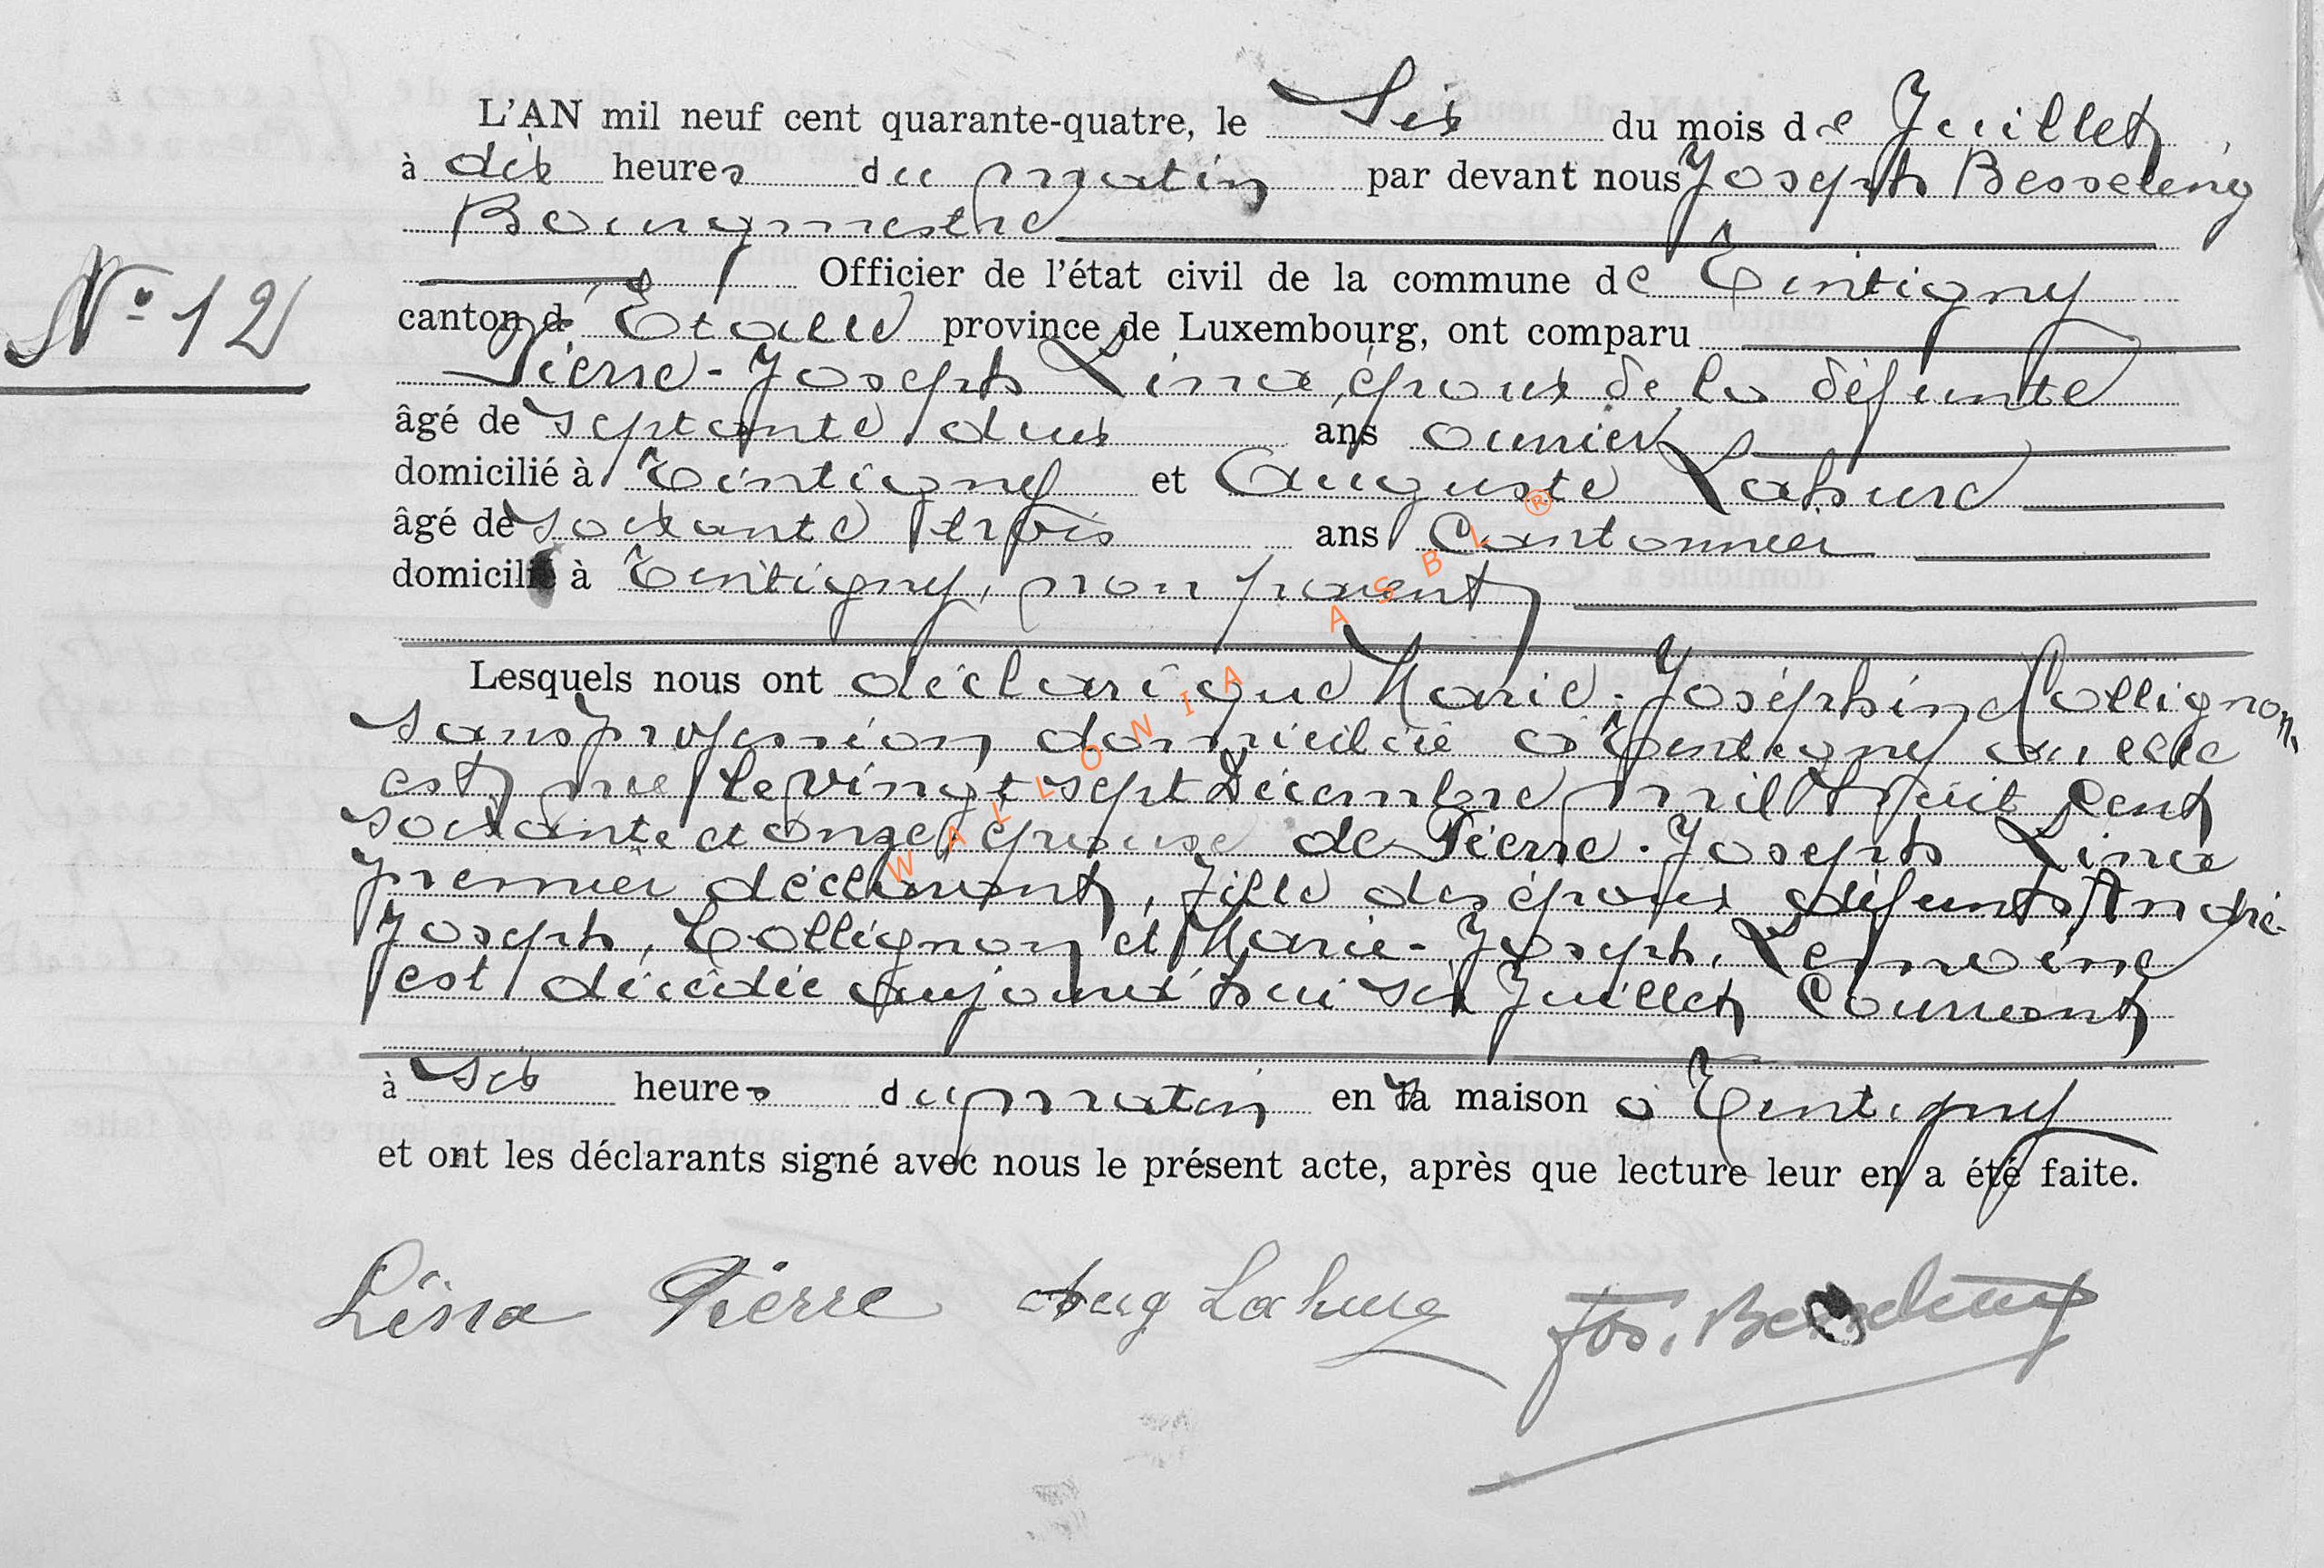 L'AN mil neuf cent quarante-quatre, le Six du mois de Juillet,
à dix heures du matin par devant nous Joseph Besseling
Bourgmestre
Officier de l'état civil de la commune de Tintigny
N° 12
canton d'Etalle province de Luxembourg, ont comparu
Pierre-Joseph Lina, époux de la défunte
âgé de septante deux ans ouvrier
domicilié à Tintigny et Auguste Lahure
âgé de soixante trois ans Cantonnier
domicilié à Tintigny, non parent
Lesquels nous ont déclaré que Marie-Joséphine Collignon,
sans profession domiciliée à Tintigny où elle
est née le vingt sept Décembre mil huit Cent
soixante et onze, épouse de Pierre-Joseph Lina
premier déclarant, fille des époux défunts André-
Joseph, Collignon et Marie-Joseph, Lemoine
est décédée aujourd'hui six Juillet Courant
à six heures du matin en sa maison à Tintigny
et ont les déclarants signé avec nous le présent acte, après que lecture leur en a été faite.
Lina Pierre Aug Lahure Jos. Besseling
WALLONIA ASBL ®